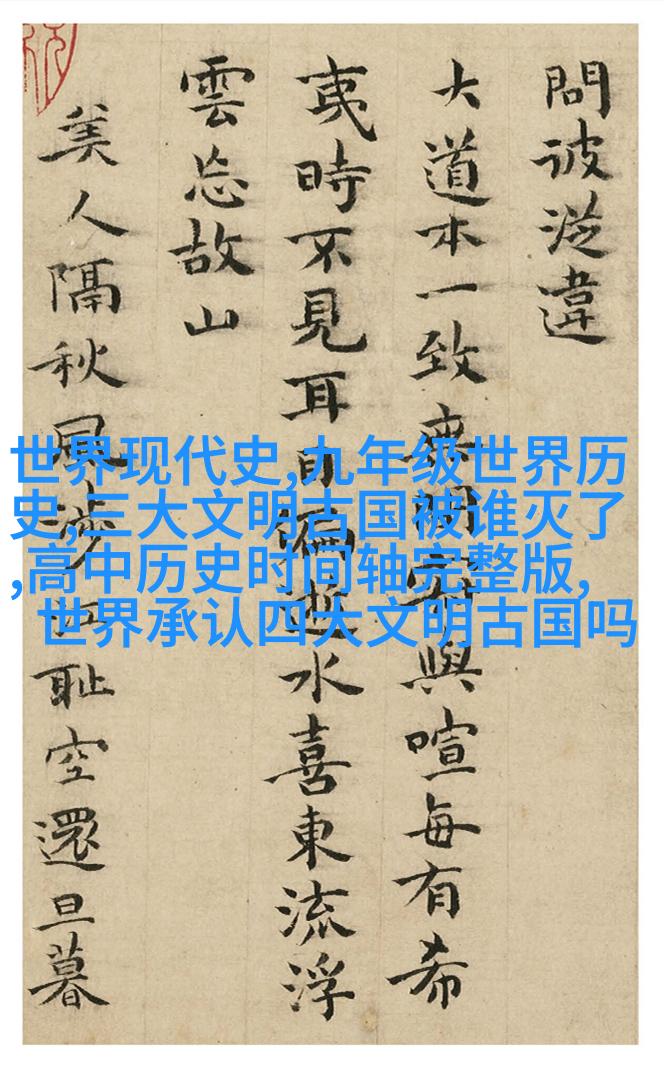 問彼從違
大道本一致無間寂與喧每有希
夷時不見耳目偏逝水喜東流浮
雲忘故山
美人隔秋風涉江恥空還旦暮
世界现代史,九年级世界历
史,三大文明古国被谁灭了
,高中历史时间轴完整版,
世界承认四大文明古国吗